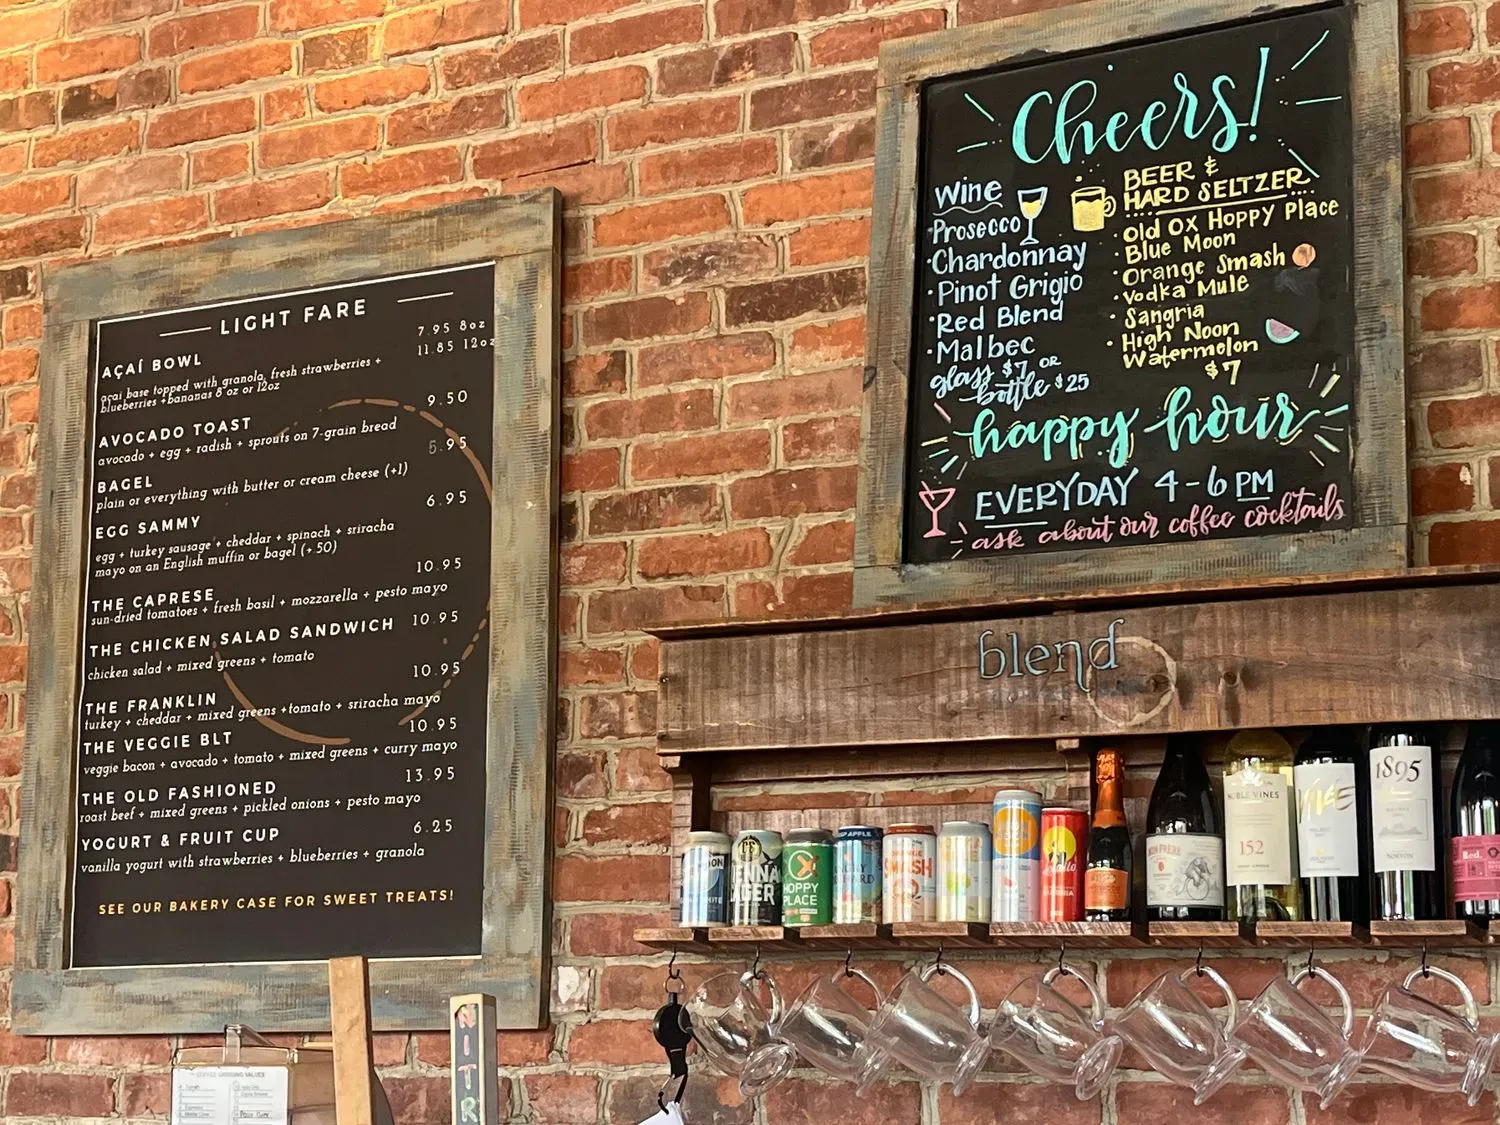 LIGHT FARE
AÇAÍ BOWL
7.95 8oz
11.85 12oz
açai base topped with granola, fresh strawberries +
blueberries + bananas 8 oz or 12oz
AVOCADO TOAST 9.50
avocado + egg + radish + sprouts on 7-grain bread
BAGEL 5.95
plain or everything with butter or cream cheese (+1)
EGG SAMMY 6.95
egg + turkey sausage + cheddar + spinach + sriracha
mayo on an English muffin or bagel (+.50)
THE CAPRESE 10.95
sun-dried tomatoes + fresh basil + mozzarella + pesto mayo
THE CHICKEN SALAD SANDWICH 10.95
chicken salad + mixed greens + tomato
THE FRANKLIN 10.95
turkey + cheddar + mixed greens + tomato + sriracha mayo
THE VEGGIE BLT 10.95
veggie bacon + avocado + tomato + mixed greens + curry mayo
THE OLD FASHIONED 13.95
roast beef + mixed greens + pickled onions + pesto mayo
YOGURT & FRUIT CUP 6.25
vanilla yogurt with strawberries + blueberries + granola
SEE OUR BAKERY CASE FOR SWEET TREATS!
Cheers!
Wine
· Prosecco
· Chardonnay
· Pinot Grigio
· Red Blend
· Malbec
glass $7 or
bottle $25
BEER &
HARD SELTZER
· Old Ox Hoppy Place
· Blue Moon
· Orange Smash
· Vodka Mule
· Sangria
· High Noon
Watermelon
$7
happy hour
EVERYDAY 4-6 PM
ask about our coffee cocktails
blend
HOPPY
PLACE
SMASH
NOBLE VINES
152
1895
NORTON
Red.
NITR